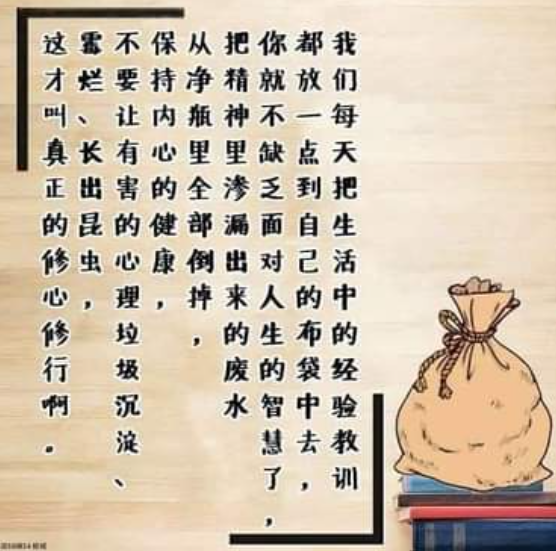 我们每天把生活中的经验教训
都放一点到自己的布袋中去，
你就不缺乏面对人生的智慧了，
把精神里渗漏出来的废水
从净瓶里全部倒掉，
保持内心的健康，
不要让有害的心理垃圾沉淀、
霉烂、长出昆虫，
这才叫真正的修心修行啊。